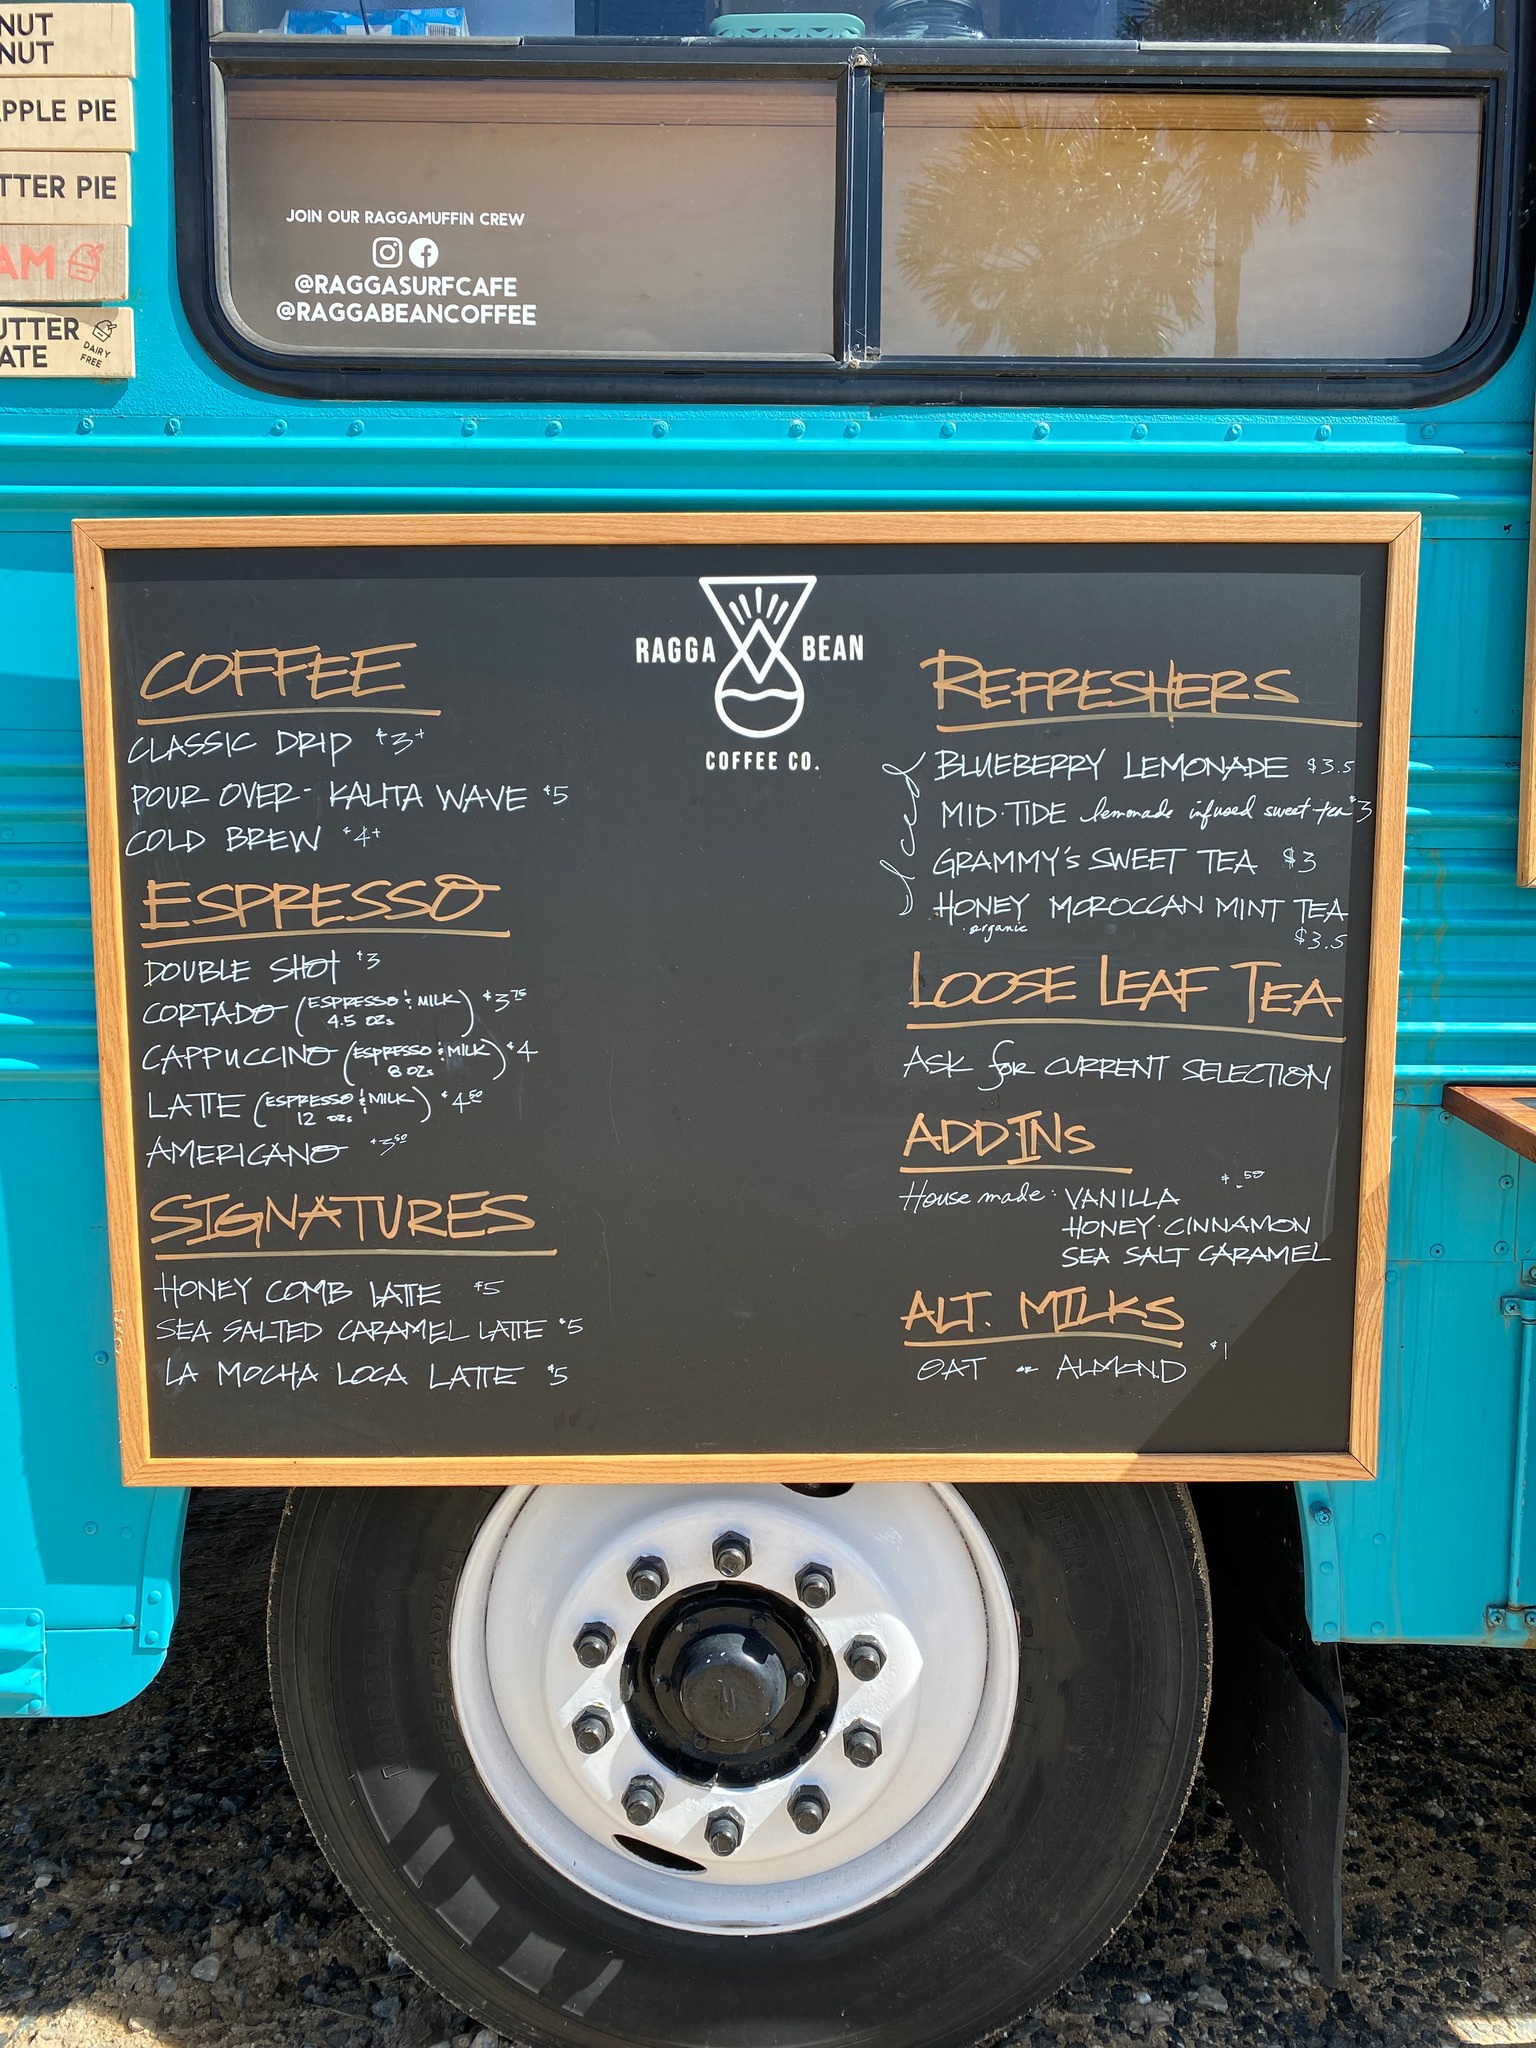 NUT
NUT
PPLE PIE
TTER PIE
AM
UTTER
ATE
DAIRY
FREE
JOIN OUR RAGGAMUFFIN CREW
@RAGGASURFCAFE
@RAGGABEANCOFFEE
RAGGA BEAN
COFFEE CO.
COFFEE
CLASSIC DRIP $3+
POUR OVER - KALITA WAVE $5
COLD BREW $4+
ESPRESSO
DOUBLE SHOT $3
CORTADO (ESPRESSO & MILK 4.5 OZs) $3.75
CAPPUCCINO (ESPRESSO & MILK 8 OZs) $4
LATTE (ESPRESSO & MILK 12 OZs) $4.50
AMERICANO $3.50
SIGNATURES
HONEY COMB LATTE $5
SEA SALTED CARAMEL LATTE $5
LA MOCHA LOCA LATTE $5
REFRESHERS
Iced
BLUEBERRY LEMONADE $3.5
MID-TIDE lemonade infused sweet tea $3
GRAMMY'S SWEET TEA $3
HONEY MOROCCAN MINT TEA
organic
$3.5
LOOSE LEAF TEA
ASK for CURRENT SELECTION
ADD INs
House made: VANILLA $.50
HONEY-CINNAMON
SEA SALT CARAMEL
ALT. MILKS
OAT or ALMOND $1
STEEL RADIAL